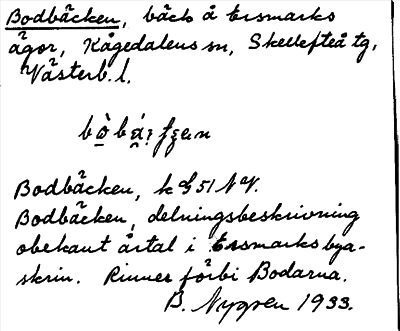 Bodbäcken, bäck å Ersmarks
ägor, Kågedalens sn, Skellefteå tg,
Västerb. l.
Bodbäcken, k
Bodbäcken, delningsbeskrivning
obekant årtal i Ersmarks bya-
skrin. Rinner förbi Bodarna.
B. Nygren 1933.